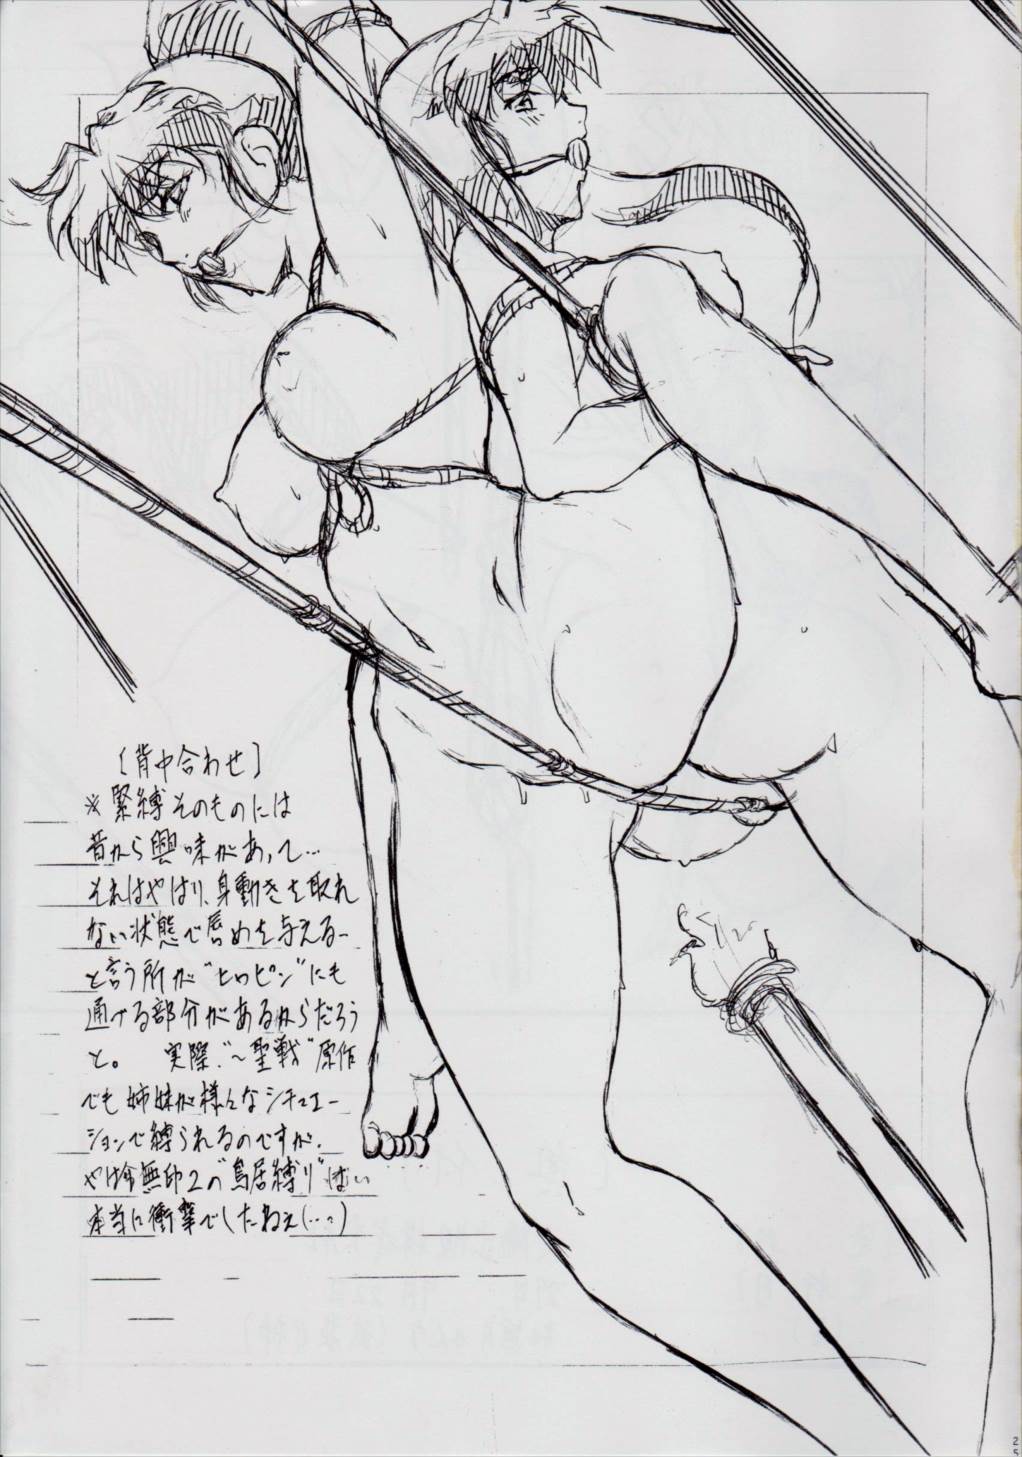 ［背中合わせ］
※緊縛そのものには
昔から興味があって…
それはやはり、身動きを取れ
ない状態で辱めを与える−
と言う所が“ヒロピン”にも
通げる部分があるからだろう
と。 実際、“〜聖戦”原作
でも姉妹が様々なシチュエー
ションで縛られるのですが、
やはり無印2の“鳥居縛り”はい
本当に衝撃でしたねぇ(…。)
25